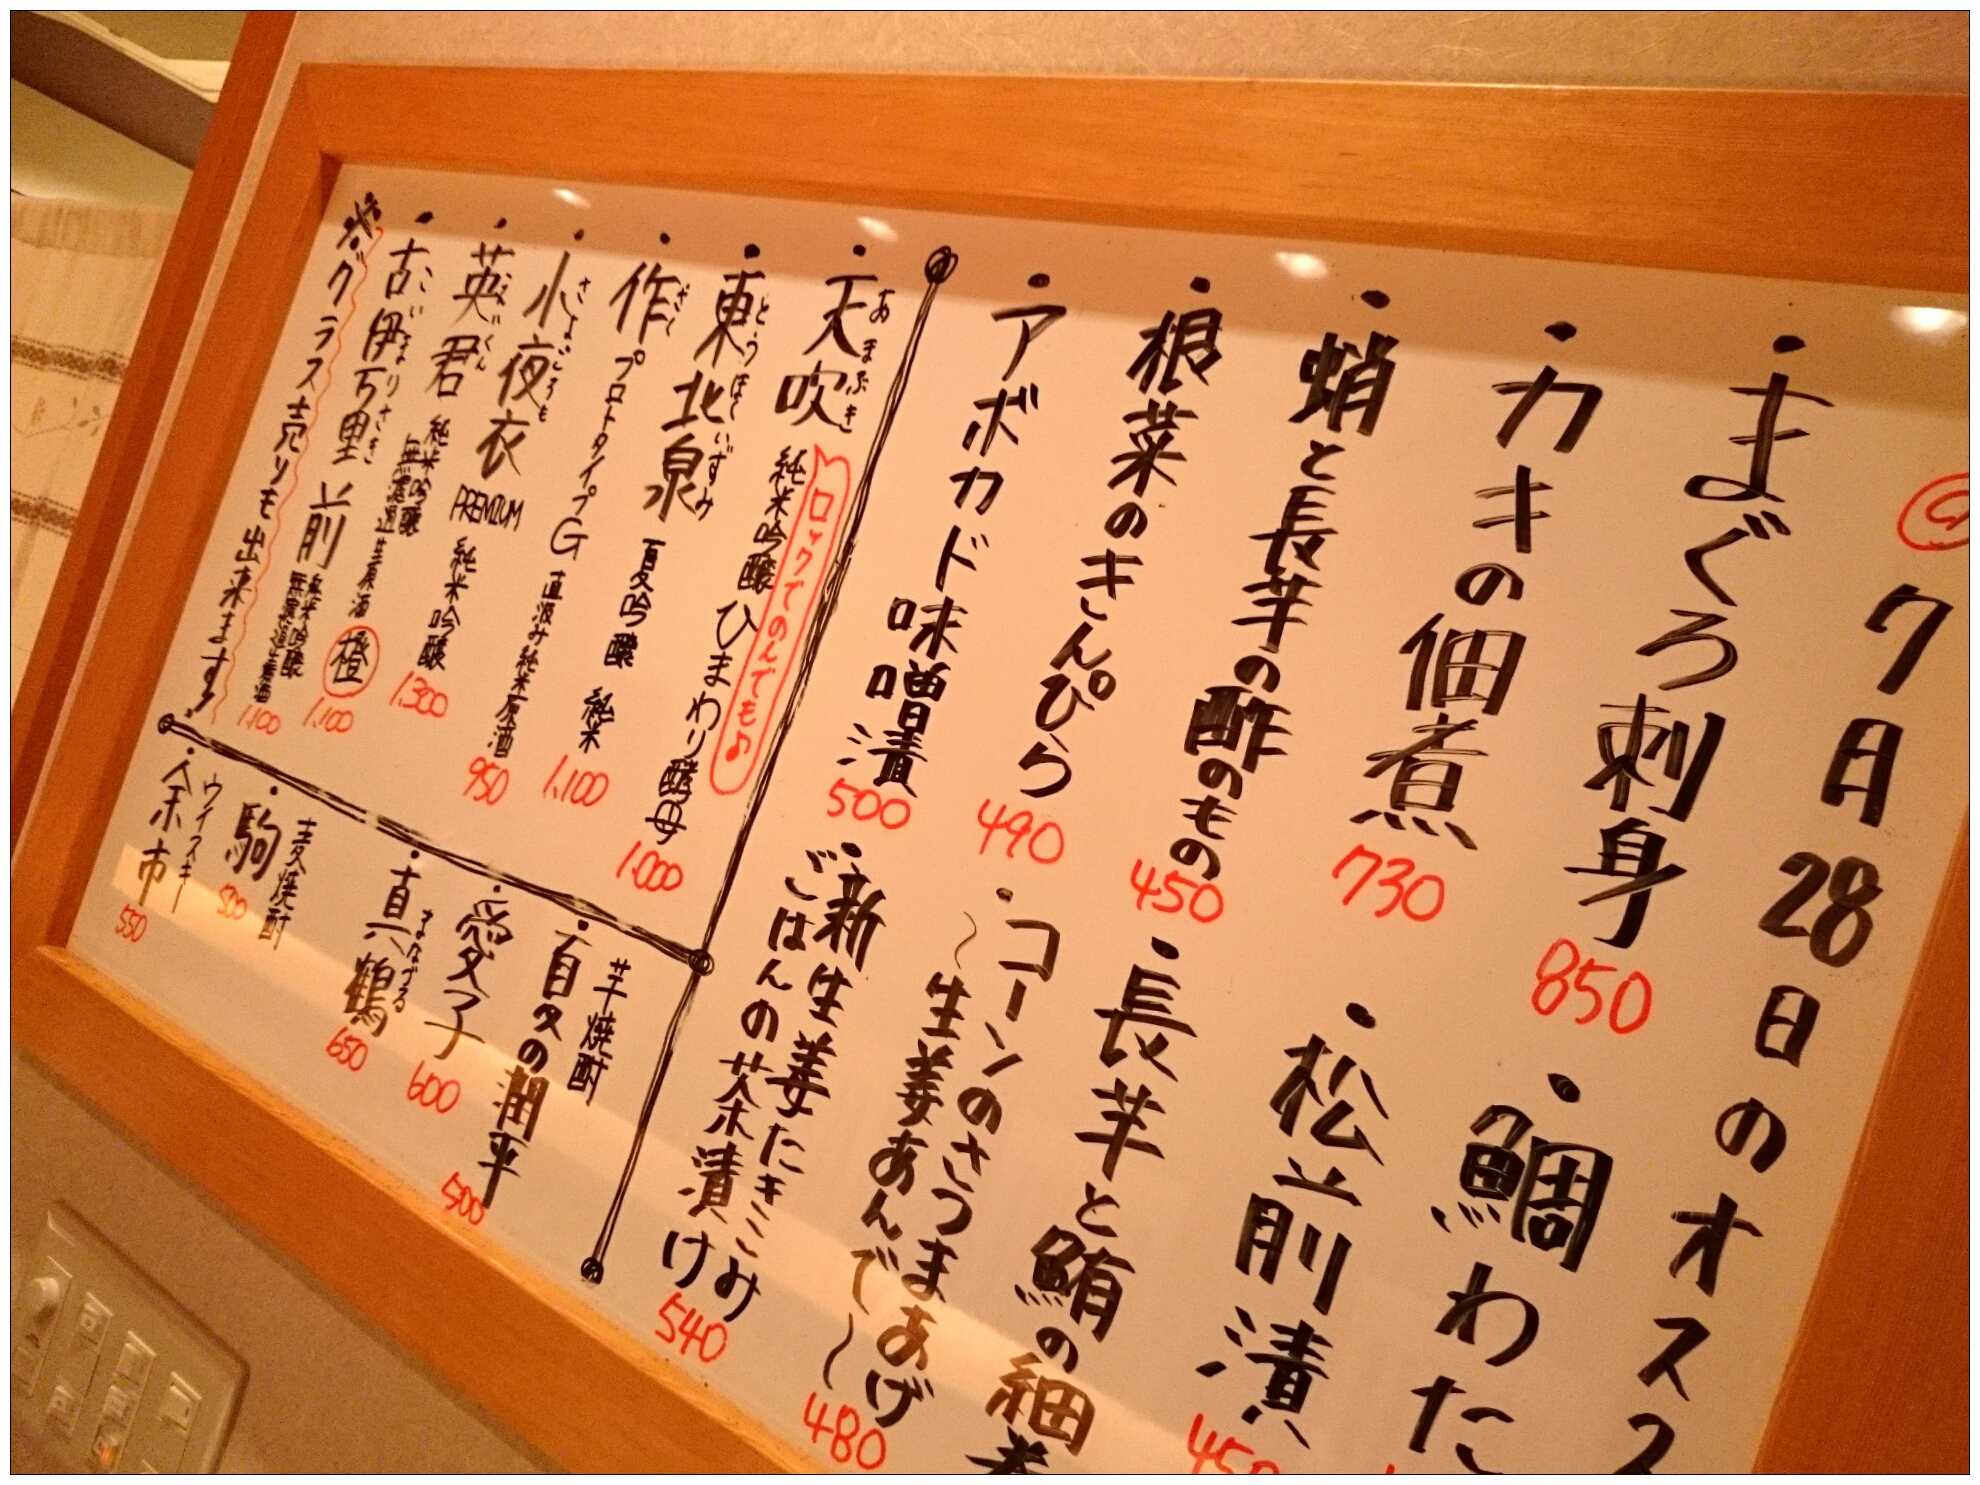 7月28日のオススメ
まぐろ刺身 850
カキの佃煮 730
蛸と長芋の酢のもの 450
根菜のきんぴら 490
アボカド味噌漬 500
鯛わた
松前漬 450
長芋と鮪の細巻
コーンのさつまあげ
〜生姜あんで〜 480
新生姜たきこみ
ごはんの茶漬け 540
天吹 あまぶき 純米吟醸 ひまわり酵母 1.000
ロックでのんでも♪
東北泉 とうほくいずみ 夏吟醸 純米 1.100
作 ざく プロトタイプG 直汲み純米原酒 950
小夜衣 さよごろも PREMIUM 純米吟醸 1.300
英君 えいくん 純米吟醸 無濾過生原酒 橙 1.100
古伊万里 こいまりさき 前 純米吟醸 無濾過生酒 1.100
※グラス売りも出来ます♪
芋焼酎
百夕の潤平 500
愛子 600
真鶴 まなづる 650
麦焼酎
駒 500
ウイスキー
余市 550